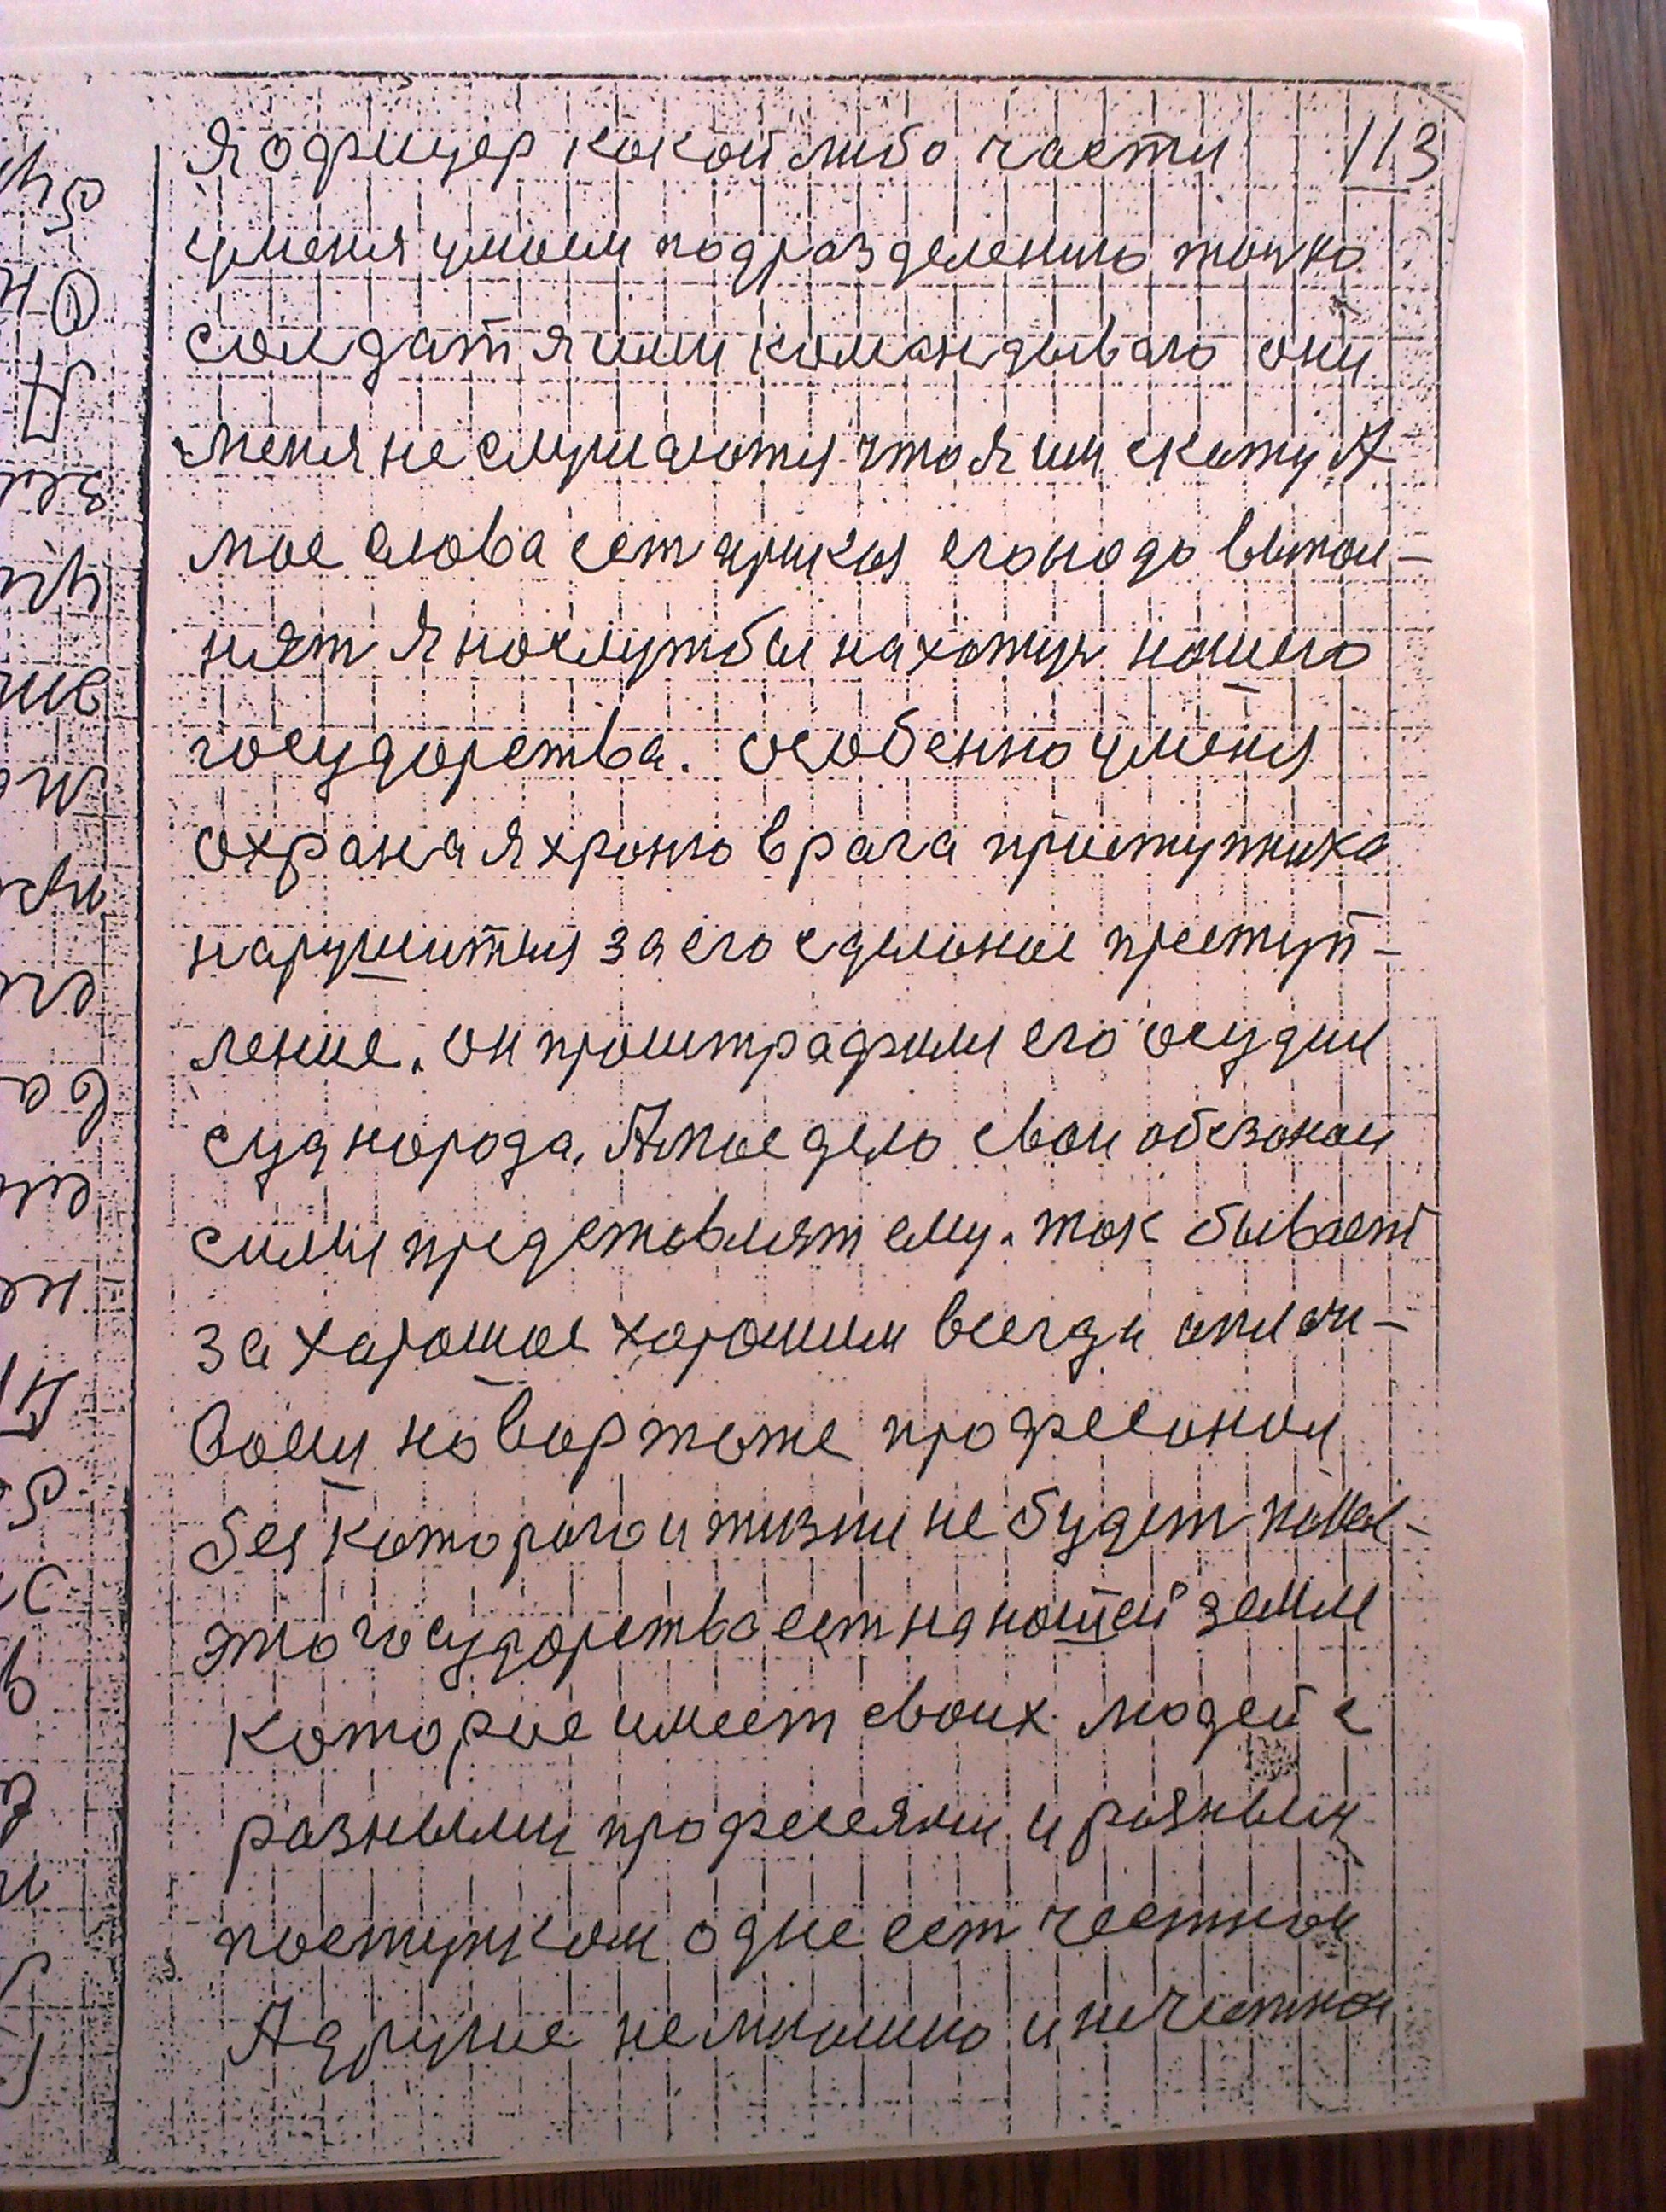 113
Я офицер какой либо части
уменя умоем подразделению точко
солдат я ими командываю они
меня не слушаютя что я им скажу А
мое слова ест приказ егонодо выпол-
нят Я наслужбы нахожус нашего
государства. особенно уменя
охрана я храню врага приступника
нарушителя за его сделоное преступ-
ление. он проштрафилы его осудил
суд народа. Амое дело свои обезоной
силы представлят ему. так бывает
за харошое харошим всегда оплачи-
воем но вор тоже професионал
без которого и жизни не будет
это государства ест на нашей земле
которые имеет своих людей с
разными професеями и разными
поступком одне ест честной
А другие немышлено и нечестной